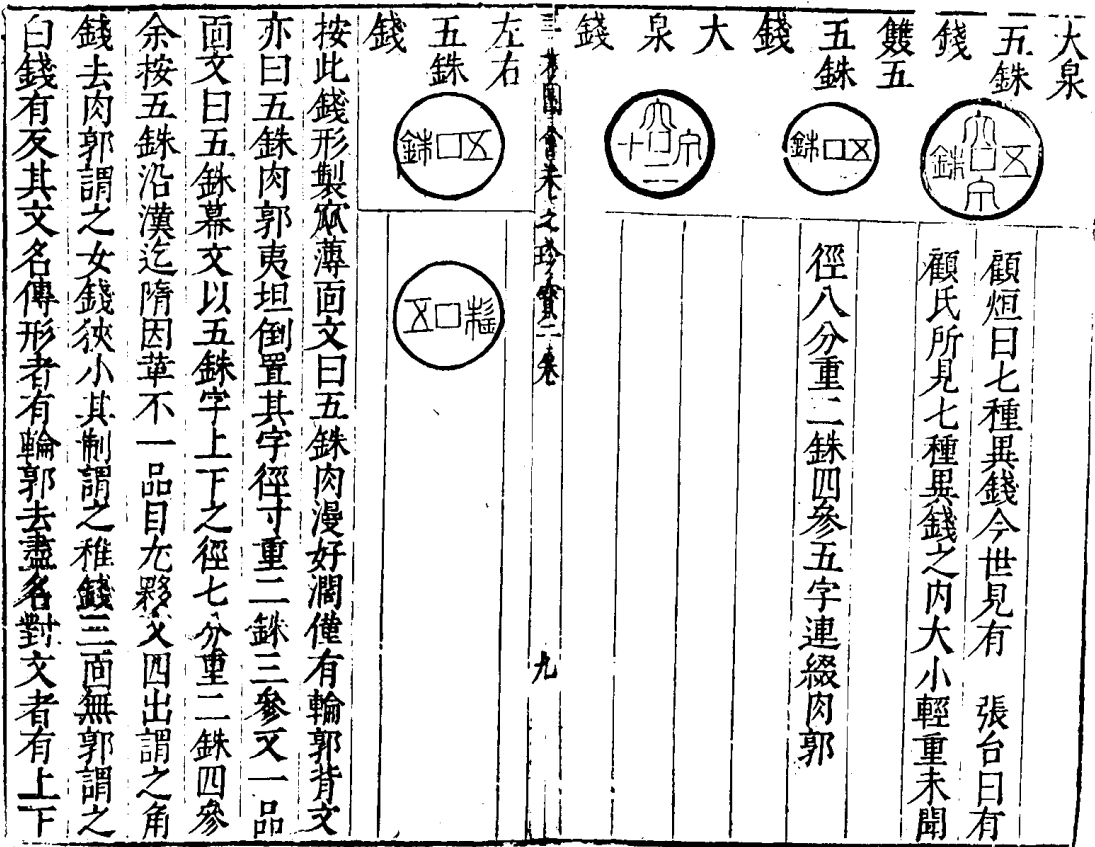 大泉
五銖
錢
顧烜曰七種異錢今世見有　張台曰有
顧氏所見七種異錢之内大小輕重未聞
雙五
五銖
錢
徑八分重二銖四參五字連綴肉郭
大
泉
錢
三才圖會　珍寶二卷
九
左右
五銖
錢
按此錢形製窳薄面文曰五銖肉漫好濶僅有輪郭背文
亦曰五銖肉郭夷坦倒置其字徑寸重二銖三參又一品
面文曰五銖幕文以五銖字上下之徑七分重二銖四參
余按五銖沿漢迄隋因革不一品目尤夥文四出謂之角
錢去肉郭謂之女錢狹小其制謂之稚錢三面無郭謂之
白錢有反其文名傳形者有輪郭去盡名對文者有上下